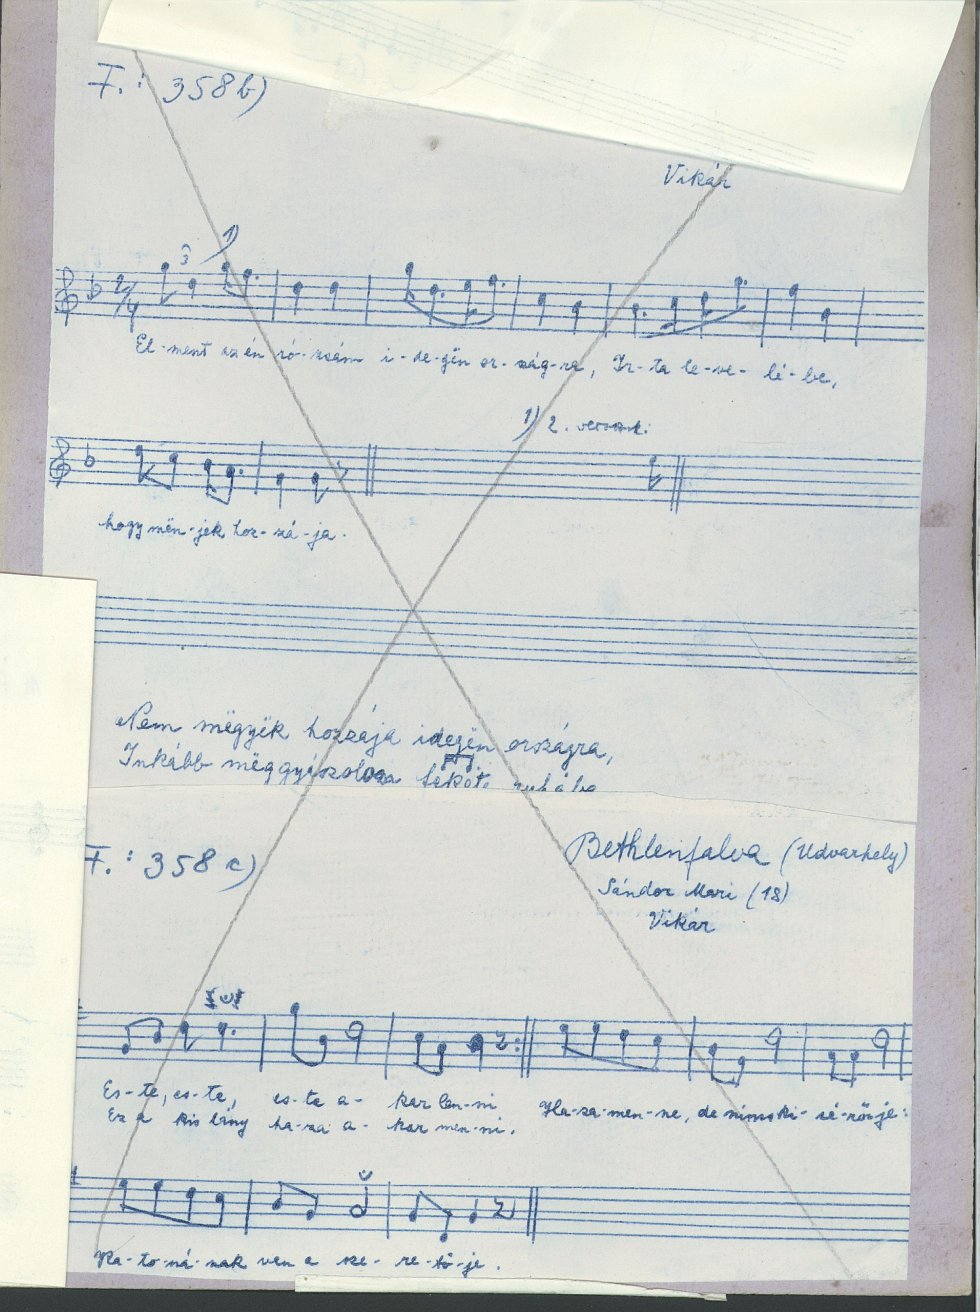 F.: 358 b)
Vikár
3 1)
2/4
El-ment az én ró-zsám i-de-gën or-szág-ra, Ir-ta le-ve- lé-be,
1) 2. versszak:
hogy mën-jek hoz-zá-ja.
Nem mëgyëk hozzája idegën országra,
Inkább mëggyászolom feketë ruhába
F.: 358 c)
Bethlenfalva (Udvarhely)
Sándor Mari (18)
Vikár
Es-te, es-te, es-te a- kar len-ni Ha-za men-ne, de nincs ki- sé-rő-je:
Ez a kis lány ha-za a- kar men-ni.
Ka-to-ná-nak van a sze- re-tő-je.